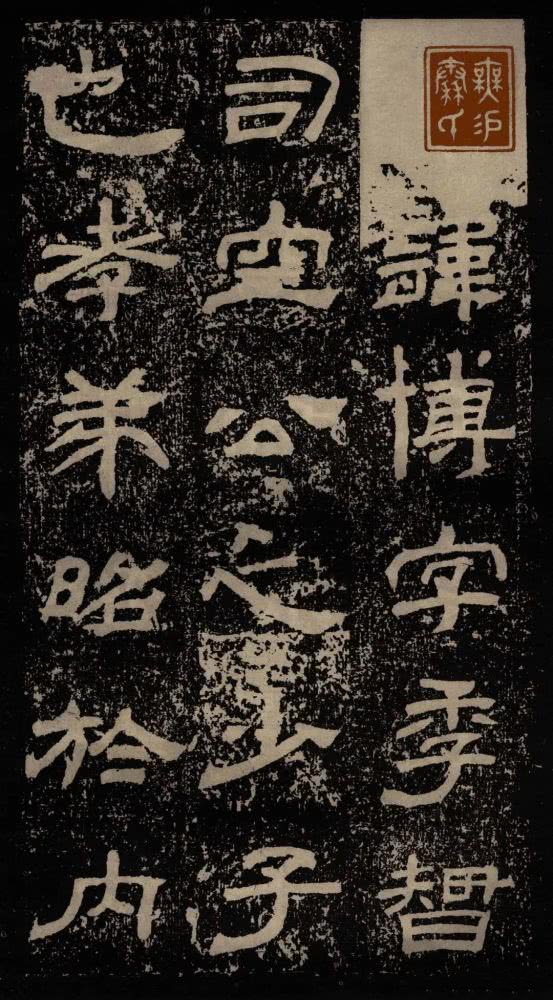 諱博字季智
司空公之少子
也孝弟昭於內